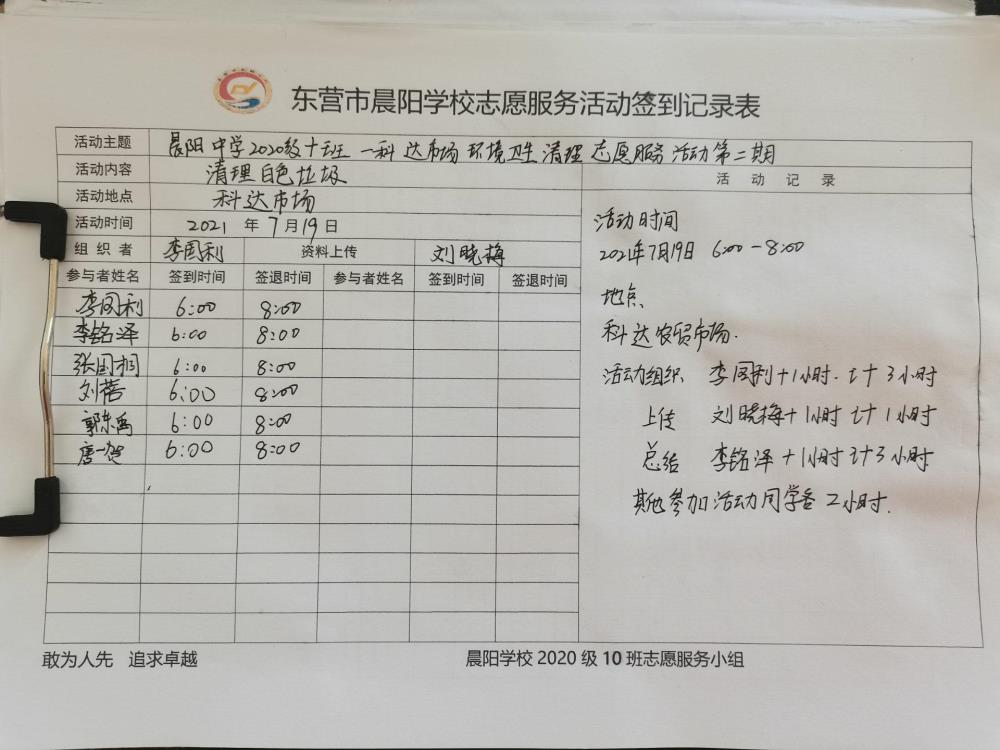 东营市晨阳学校志愿服务活动签到记录表
活动主题 晨阳中学2020级十班一科达市场环境卫生清理志愿服务活动第二期
活动内容 清理白色垃圾
活动地点 科达市场
活动时间 2021 年 7月19日
组织者 李国利 资料上传 刘晓梅
参与者姓名 签到时间 签退时间 参与者姓名 签到时间 签退时间
李国利 6:00 8:00
李铭泽 6:00 8:00
张国桐 6:00 8:00
刘蓓 6:00 8:00
6:00 8:00
唐一贺 6:00 8:00
活动记录
活动时间
2021年7月19日 6:00-8:00
地点、
科达农贸市场.
活动组织 李国利+1小时. 计3小时
上传 刘晓梅+1小时 计1小时
总结 李铭泽+1小时 计3小时
其他参加活动同学各2小时.
敢为人先 追求卓越
晨阳学校2020级10班志愿服务小组